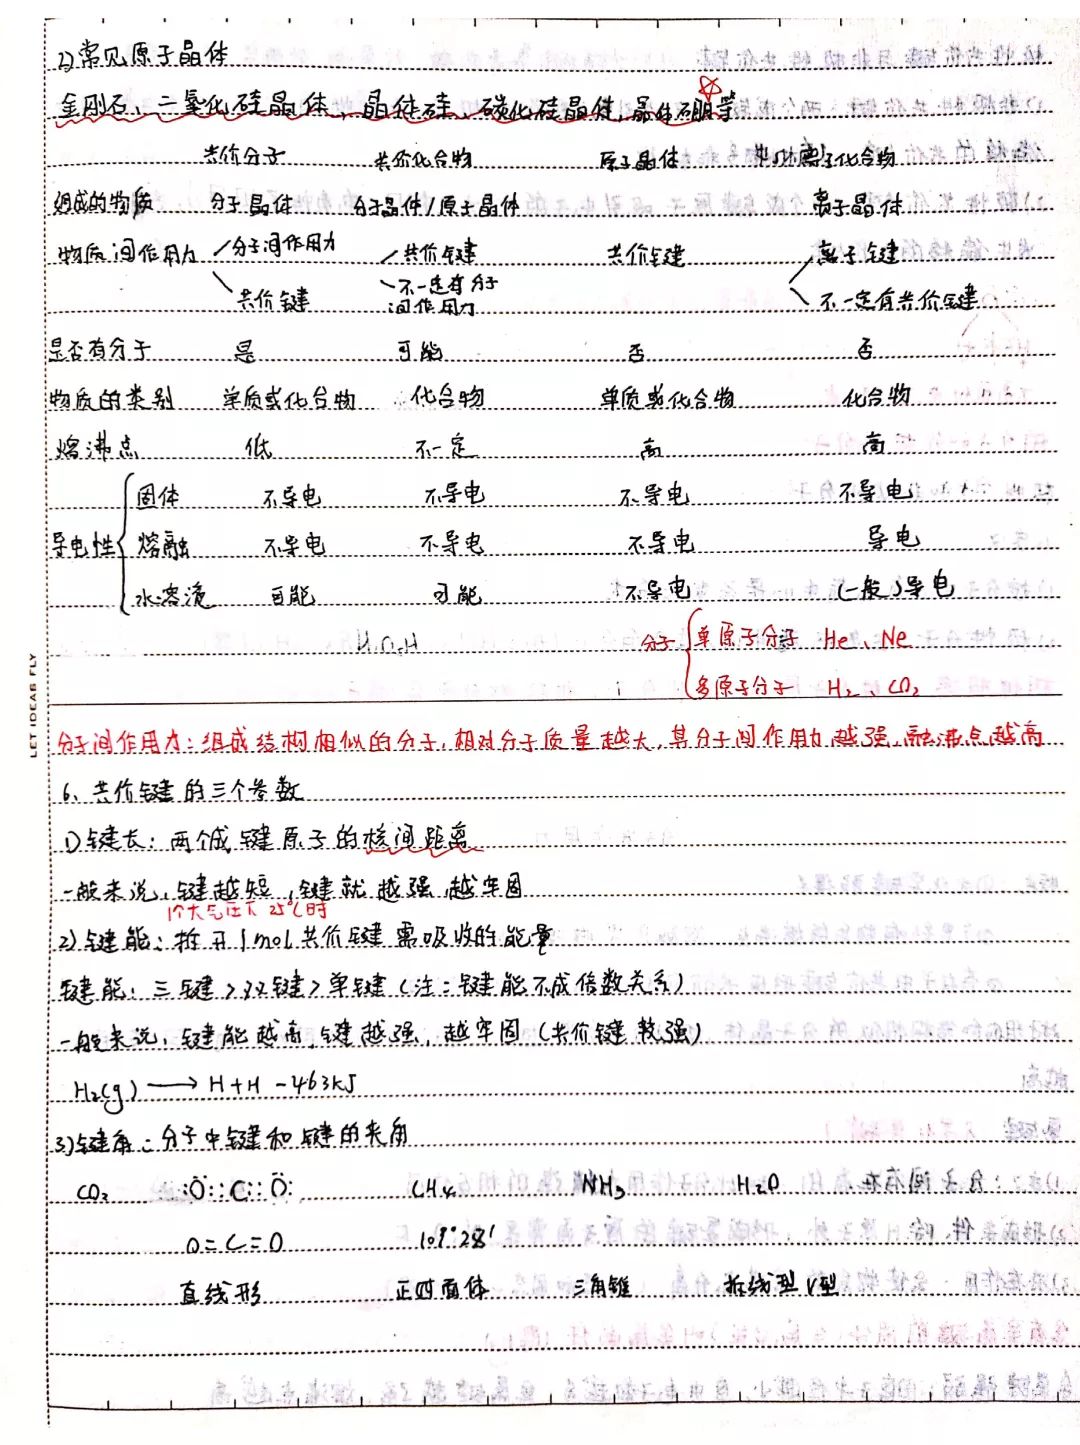 2)常见原子晶体
金刚石、二氧化硅晶体、晶体硅、碳化硅晶体,晶体硼等
共价分子 共价化合物 原子晶体 离子化合物
组成的物质 分子晶体 分子晶体/原子晶体 离子晶体
物质间作用力 分子间作用力 共价键 共价键 离子键
共价键 不一定有分子间作用力 不一定有共价键
是否有分子 是 可能 否 否
物质的类别 单质或化合物 化合物 单质或化合物 化合物
熔沸点 低 不一定 高 高
固体 不导电 不导电 不导电 不导电
导电性 熔融 不导电 不导电 不导电 导电
水溶液 可能 可能 不导电 (一般)导电
分子 单原子分子 He、Ne
多原子分子 H₂、CO₂
LET IDEAS FLY
分子间作用力:组成结构相似的分子,相对分子质量越大,其分子间作用力越强,融沸点越高
6、共价键的三个参数
1)键长:两个成键原子的核间距离
一般来说,键越短,键就越强,越牢固
1个大气压下25℃时
2)键能:拆开1mol共价键需吸收的能量
键能:三键>双键>单键(注:键能不成倍数关系)
一般来说,键能越高,键越强,越牢固(共价键较强)
H₂(g) → H+H-463kJ
3)键角:分子中键和键的夹角
CO₂ :Ö::C::Ö: CH₄ NH₃ H₂O
O=C=O 109°28′
直线形 正四面体 三角锥 折线型 V型